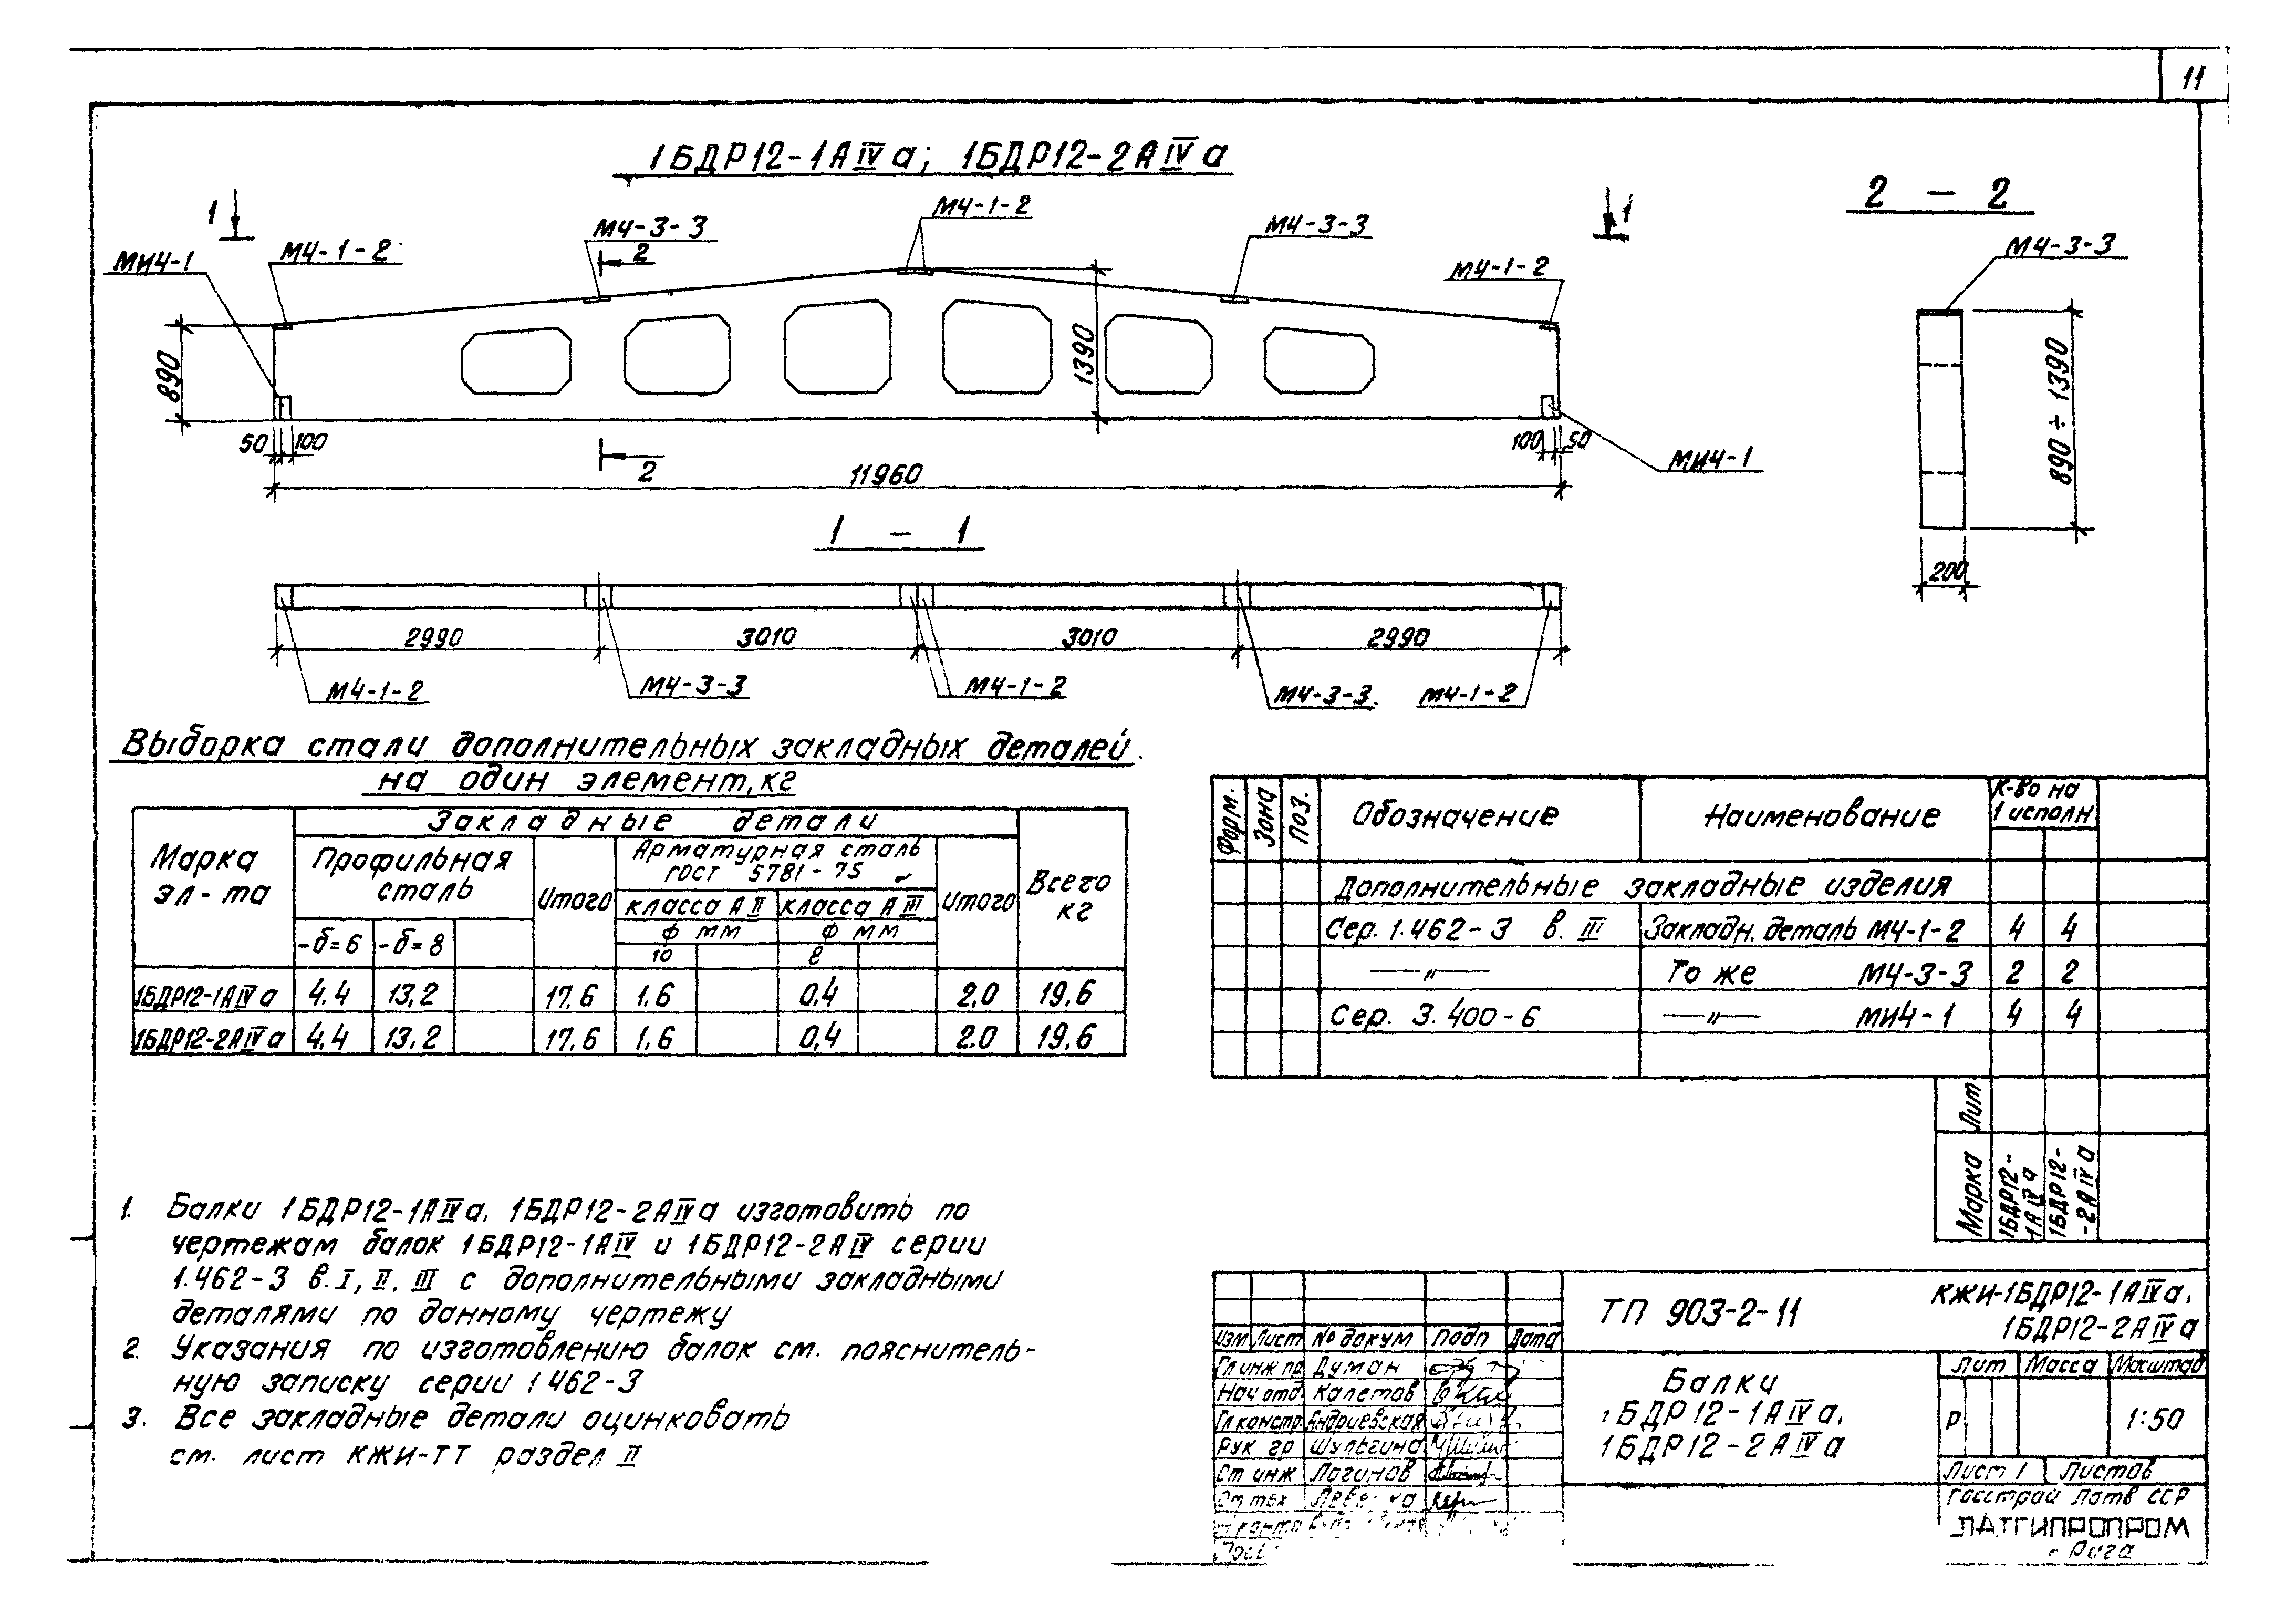 11
1БДР12-1АIVа; 1БДР12-2АIVа
2 - 2
1
1
МИ4-1
М4-1-2
М4-3-3
2
М4-1-2
М4-3-3
М4-1-2
М4-3-3
890
1390
890÷1390
50
100
2
100
50
МИ4-1
11960
200
1 - 1
2990
3010
3010
2990
М4-1-2
М4-3-3
М4-1-2
М4-3-3
М4-1-2
Выборка стали дополнительных закладных деталей
на один элемент, кг
Марка эл-та
Закладные детали
Профильная сталь
Итого
Арматурная сталь
ГОСТ 5781-75
Итого
Всего кг
класса АII
класса АIII
-δ=6
-δ=8
ф мм
ф мм
10
8
1БДР12-1АIVа 4,4 13,2 17,6 1,6 0,4 2,0 19,6
1БДР12-2АIVа 4,4 13,2 17,6 1,6 0,4 2.0 19,6
Форм. Зона Поз. Обозначение Наименование К-во на 1 исполн
Дополнительные закладные изделия
Сер. 1.462-3 в. III Закладн. деталь М4-1-2 4 4
—"— То же М4-3-3 2 2
Сер. 3.400-6 —"— МИ4-1 4 4
Лит
Марка
1БДР12-1АIVа
1БДР12-2АIVа
1. Балки 1БДР12-1АIVа, 1БДР12-2АIVа изготовить по
чертежам балок 1БДР12-1АIV и 1БДР12-2АIV серии
1.462-3 в. I, II, III с дополнительными закладными
деталями по данному чертежу
2. Указания по изготовлению балок см. пояснитель-
ную записку серии 1 462-3
3. Все закладные детали оцинковать
см. лист КЖИ-ТТ раздел II
ТП 903-2-11
КЖИ-1БДР12-1АIVа,
1БДР12-2АIVа
Изм Лист № докум Подп Дата
Гл инж пр Думан
Нач отд. Калетов
Гл констр. Андриевская
Рук гр Шульгина
Ст инж Логинов
Ст тех
Балки
1БДР12-1АIVа,
1БДР12-2АIVа
Лит Масса Масштаб
Р 1:50
Лист 1 Листов
Госстрой Латв ССР
ЛАТГИПРОПРОМ
г Рига